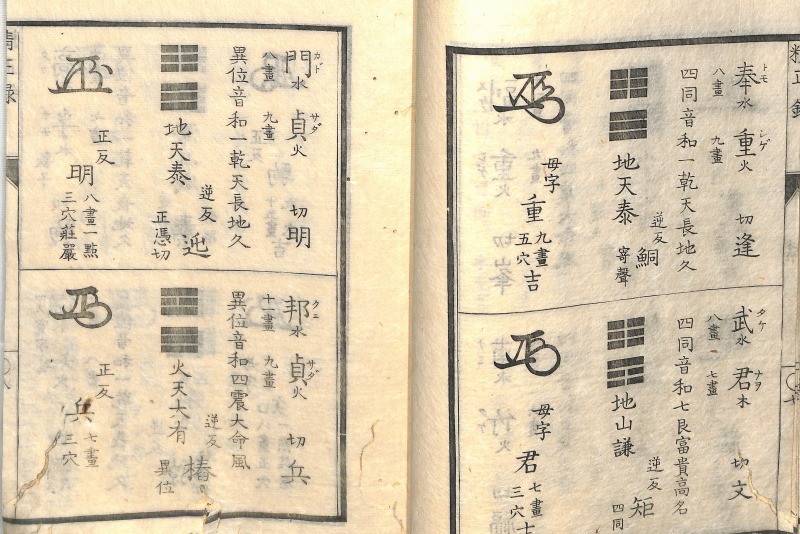 奉トモ 水 八畫 重シゲ 火 九畫 切逢
四同音和一乾天長地久
地天泰 逆反 鮦 寄聲
母字 重 九畫 五穴 吉
武タケ 水 八畫 君ナヲ 木 七畫 切文
四同音和七艮富貴高名
地山謙 逆反 矩 四同
母字 君 七畫 三穴
門カド 水 八畫 貞サダ 火 九畫 切明
異位音和一乾天長地久
地天泰 逆反 正憑切
正反 明 八畫一點 三穴莊嚴
邦クニ 水 十一畫 貞サダ 火 九畫 切兵
異位音和四震大命風
火天大有 逆反 椿 異位
正反 兵 七畫 三穴